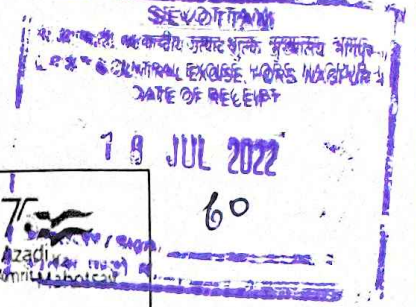 SEVOTTAM
केन्द्रीय उत्पाद शुल्क मुख्यालय नागपुर
CENTRAL EXCISE HQRS NAGPUR
DATE OF RECEIPT
18 JUL 2022
60
75
Azadi Ka
Amrit Mahotsav